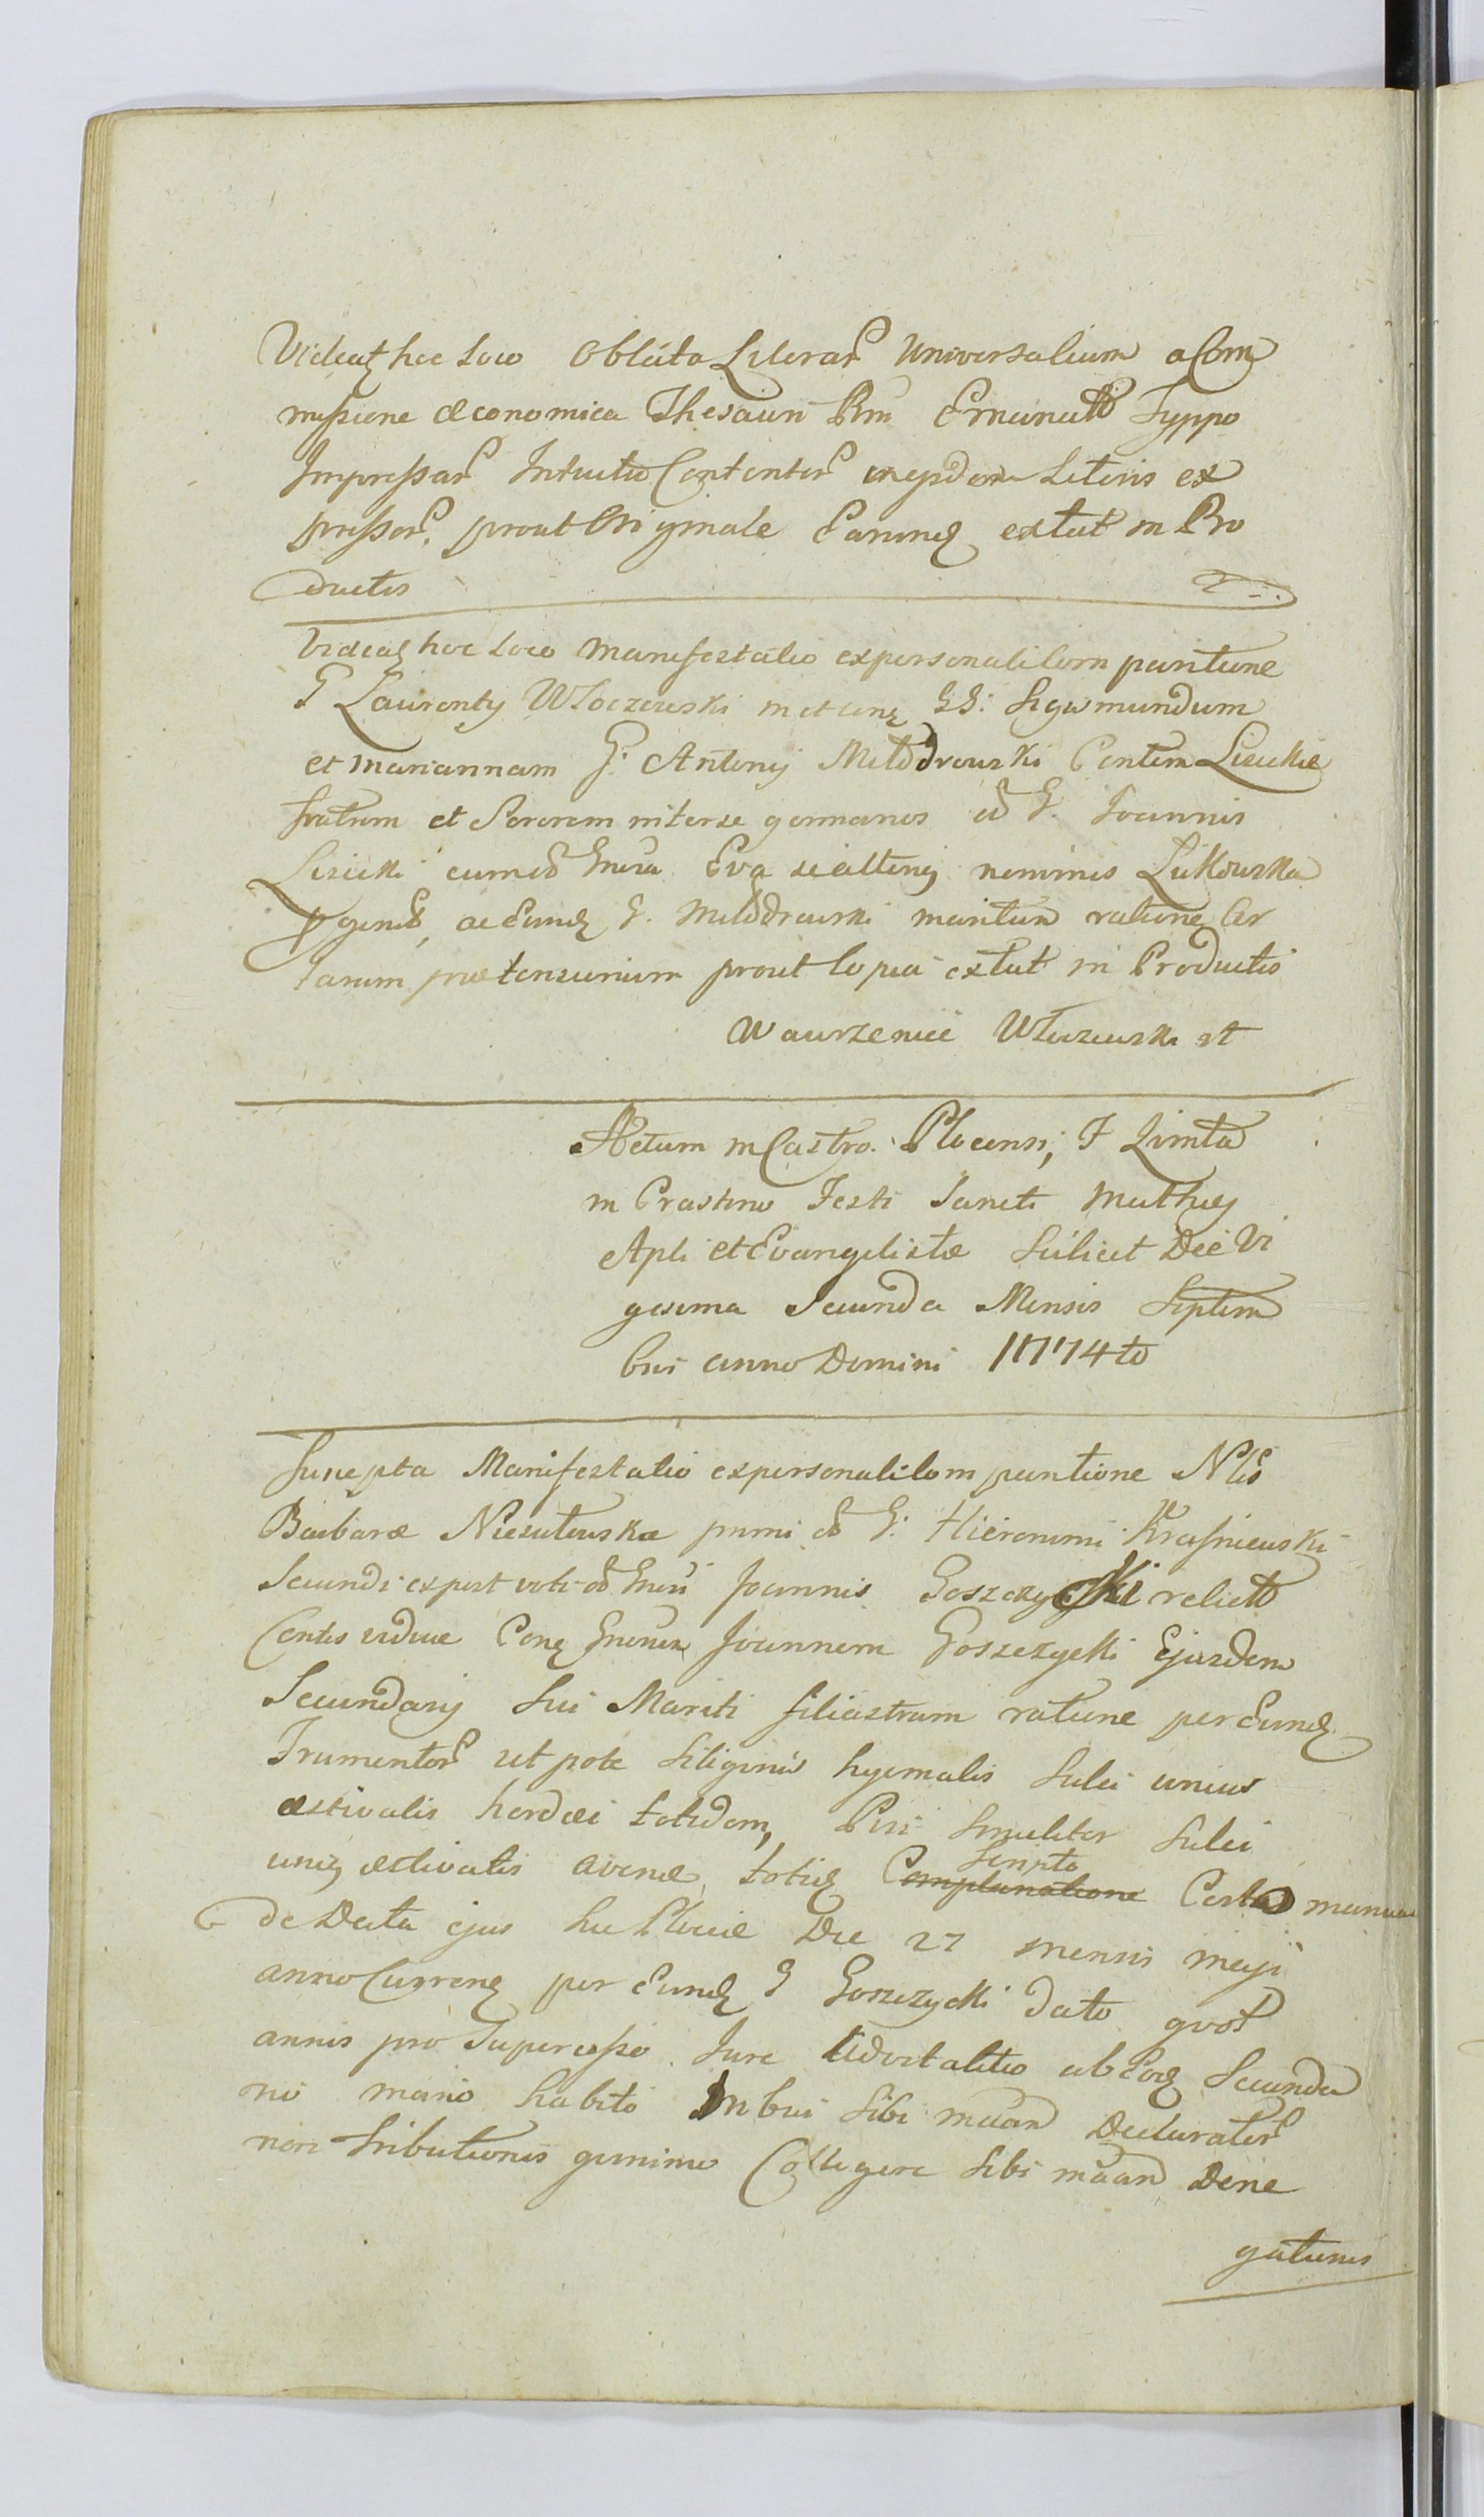 Videat hoc loco Oblata Literar Universalium a Com
missione Oeconomica Thesauri Rni Emanat Typpo
Impressar Intuitu Contentor in ejsdem Literis ex
pressor, prout Originale Earund extat in Pro
ductis
Videat hoc loco Manifestatio expersonalilom paritione
G Laurenty Włoczewski in et conz GG: Sigismundum
et Mariannam G: Antonij Młodrowski Contem Lisickie
fratrem et Sororem interse germanos od G. Joannis
Lisicki cum od Gnera Eva sialteriy nominis Łukowska
pgenit, ac Eund G. Młodrowski maritum ratione Cer
tarum praetensionum prout Copia extat in Productis
Wawrzeniec Włoczewski st
Actum in Castro Plocensi, F Qvinta
in Crastino Festi Sancti Mathey
Apli et Evangelistae Scilicet Die Vi
gesima Secunda Mensis Septem
bris anno Domini 1774to
Suscepta Manifestatio expersonalilom paritione Nlis
Barbarae Niesułowska primi od G: Hieronimi Krasniewski
Secundi expost voti od Gneri Joannis Goszczycki relict
Centis viduae Conz Gnerum Joannem Goszczycki Ejusdem
Secundarij Sui Mariti filiastrum ratione per Eund
Frumentor utpote Siliginis hyemalis Sulci unius
aestivalis hordei totidem, Pisi Similiter Sulci
unig aestivalis avenae, totid Complanatione Scripto Certo manua
de Data ejus hic Plociae Die 27 Mensis Maji
anno Curren per Eund G Goszczycki dato qvot
annis pro Supercesso Jure Advitalitio ab Eod Secunda
rio mario habito In bui Sibi mean Declarator
non Tributionis gimino Collegere Sibi mean Dene
gationis